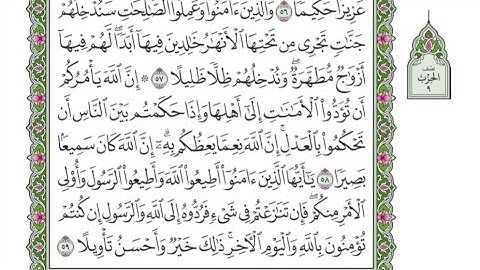 عَزِيزًا حَكِيمًا ٥٦ وَالَّذِينَ ءَامَنُوا وَعَمِلُوا الصَّٰلِحَٰتِ سَنُدْخِلُهُمْ
جَنَّٰتٍ تَجْرِى مِن تَحْتِهَا الْأَنْهَٰرُ خَٰلِدِينَ فِيهَا أَبَدًا ۖ لَّهُمْ فِيهَا
أَزْوَٰجٌ مُّطَهَّرَةٌ ۖ وَنُدْخِلُهُمْ ظِلًّا ظَلِيلًا ٥٧ ۞ إِنَّ اللَّهَ يَأْمُرُكُمْ
أَن تُؤَدُّوا الْأَمَٰنَٰتِ إِلَىٰٓ أَهْلِهَا وَإِذَا حَكَمْتُم بَيْنَ النَّاسِ أَن
تَحْكُمُوا بِالْعَدْلِ ۚ إِنَّ اللَّهَ نِعِمَّا يَعِظُكُم بِهِۦٓ ۗ إِنَّ اللَّهَ كَانَ سَمِيعًۢا
بَصِيرًا ٥٨ يَٰٓأَيُّهَا الَّذِينَ ءَامَنُوٓا أَطِيعُوا اللَّهَ وَأَطِيعُوا الرَّسُولَ وَأُو۟لِى
الْأَمْرِ مِنكُمْ ۖ فَإِن تَنَٰزَعْتُمْ فِى شَىْءٍ فَرُدُّوهُ إِلَى اللَّهِ وَالرَّسُولِ إِن كُنتُمْ
تُؤْمِنُونَ بِاللَّهِ وَالْيَوْمِ الْءَاخِرِ ۚ ذَٰلِكَ خَيْرٌ وَأَحْسَنُ تَأْوِيلًا ٥٩
نصف
الحزب
٩